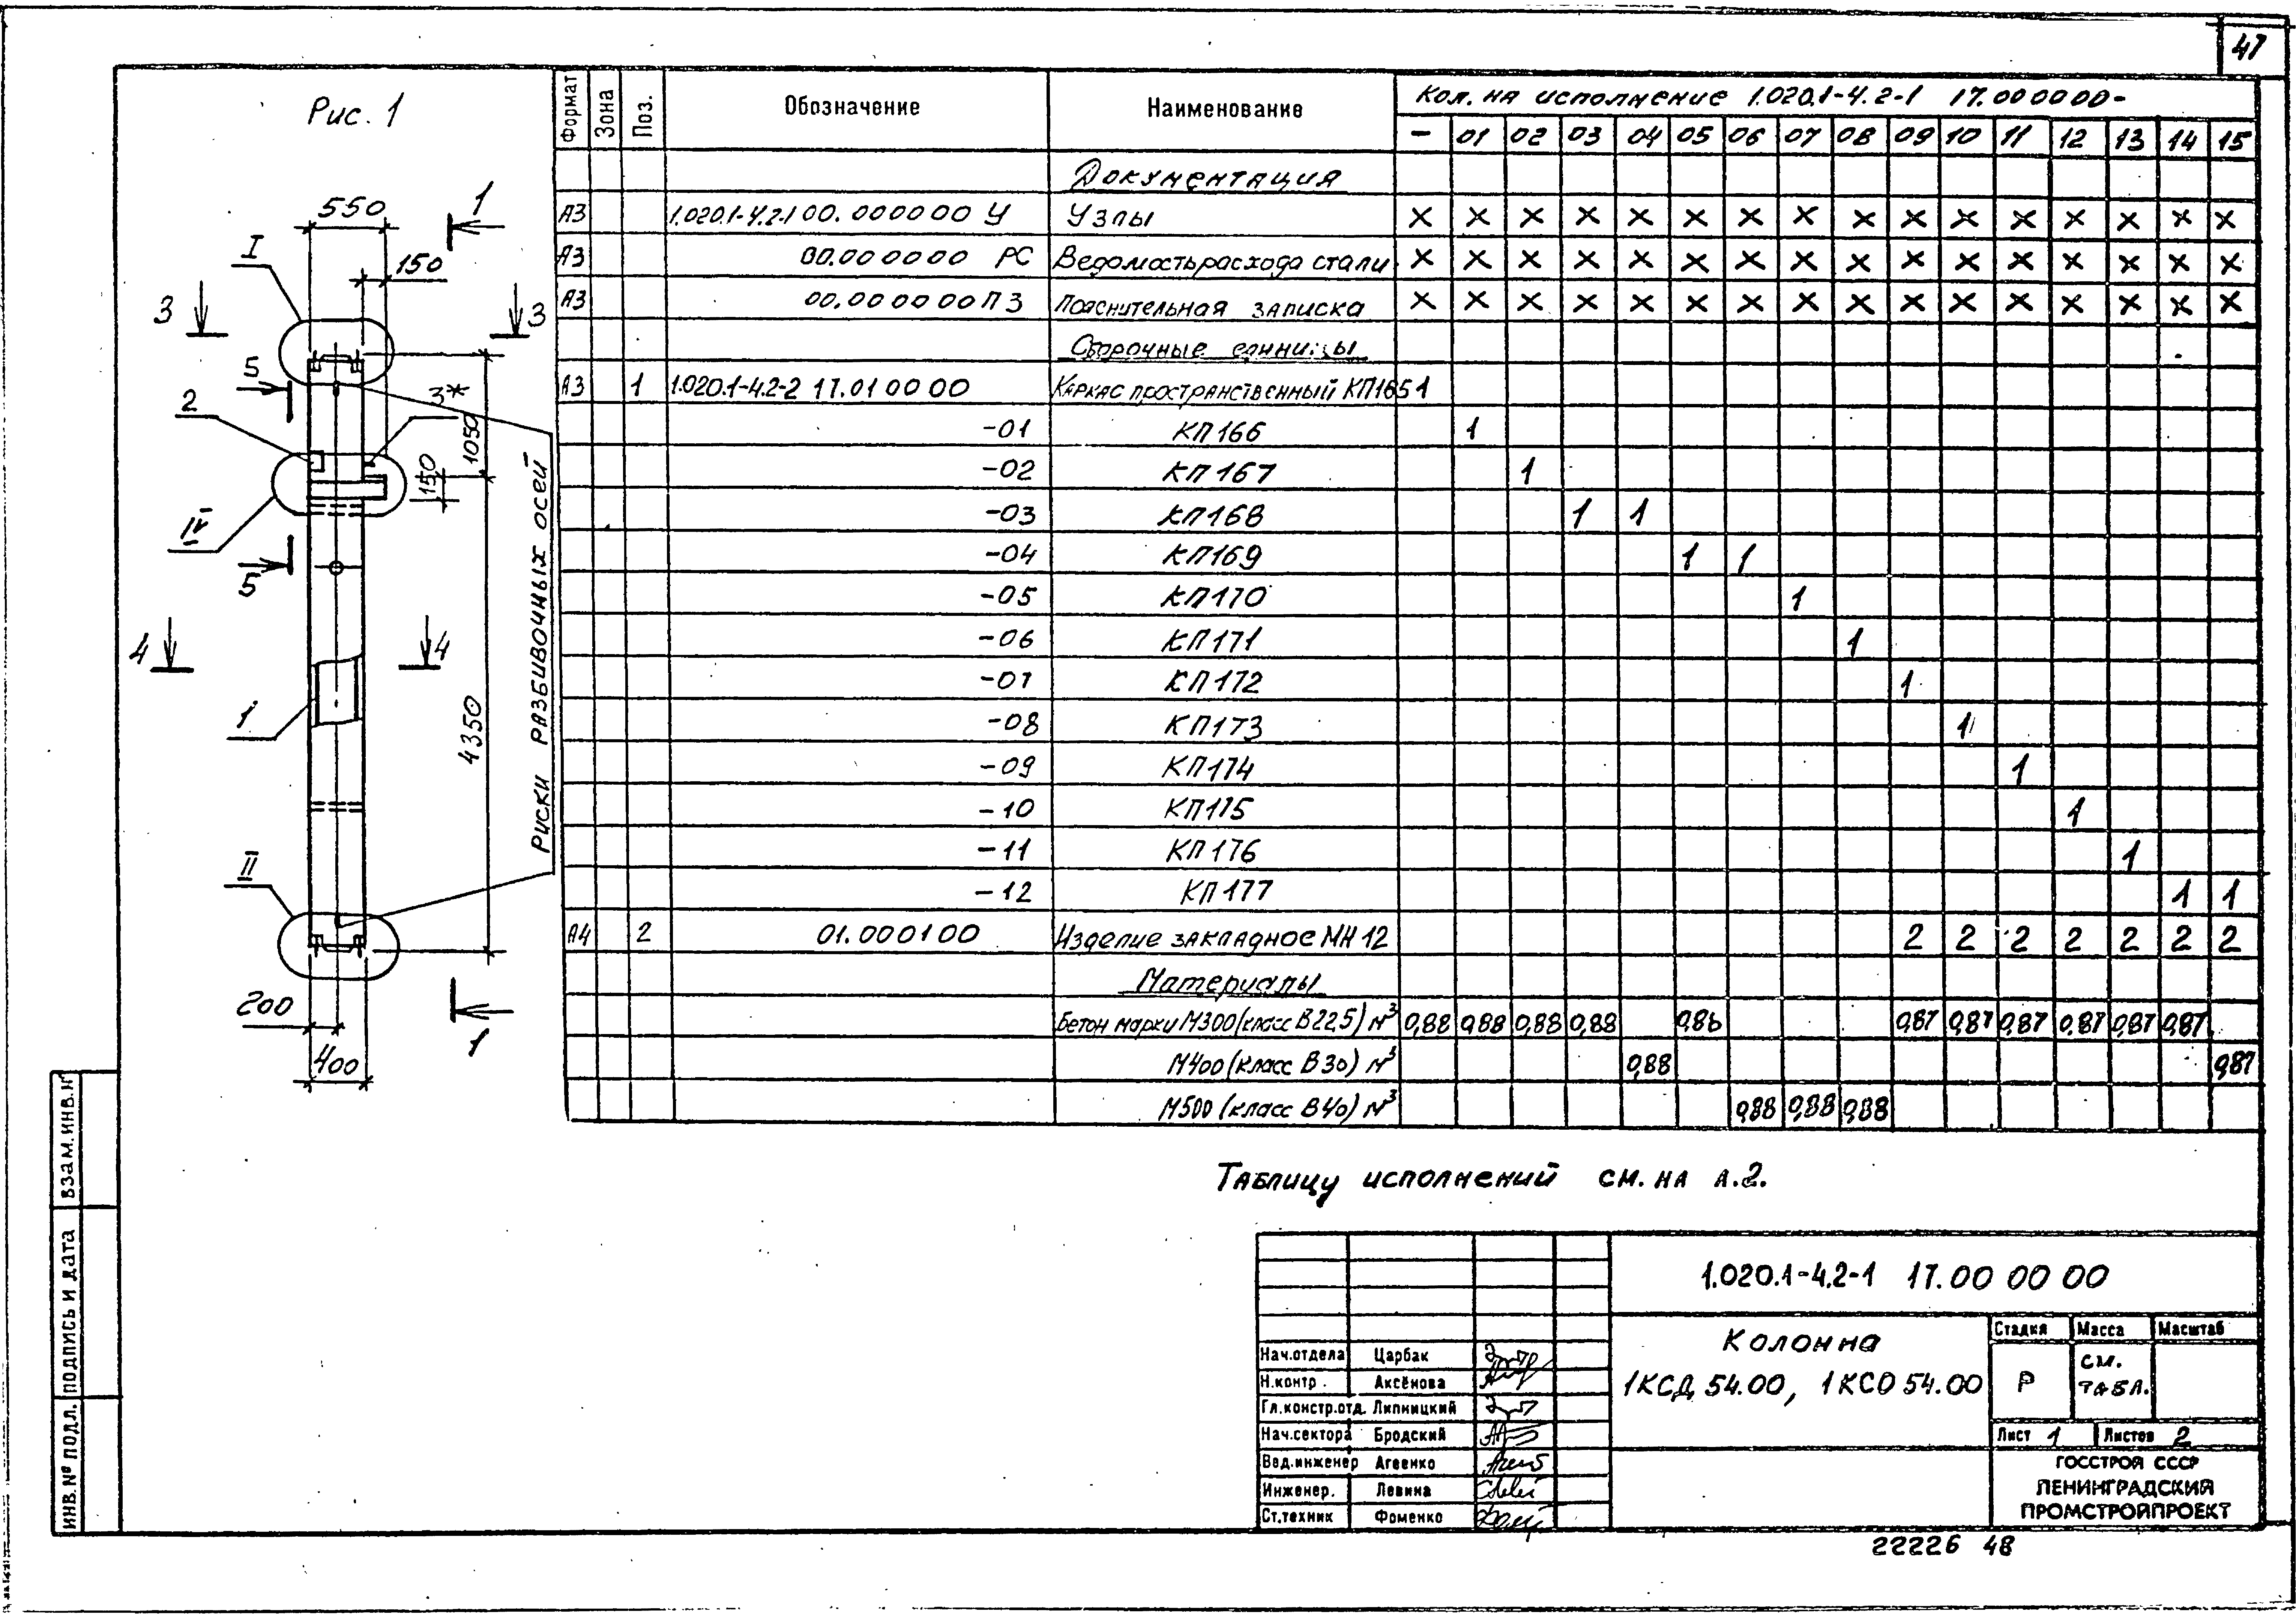 47
Рис. 1
550
1
I
150
3
3
5
2
3*
1050
150
IV
5
4
4
1
4350
Риски разбивочных осей
II
200
400
1
Формат Зона Поз. Обозначение Наименование Кол. на исполнение 1.020.1-4.2-1 17.000000-
- 01 02 03 04 05 06 07 08 09 10 11 12 13 14 15
Документация
А3 1.020.1-4.2-1 00.000000 У Узлы × × × × × × × × × × × × × × × ×
А3 00.000000 РС Ведомость расхода стали × × × × × × × × × × × × × × × ×
А3 00.000000 ПЗ Пояснительная записка × × × × × × × × × × × × × × × ×
Сборочные единицы
А3 1 1.020.1-4.2-2 17.01 00 00 Каркас пространственный КП165 1
-01 КП166 1
-02 КП167 1
-03 КП168 1 1
-04 КП169 1 1
-05 КП170 1
-06 КП171 1
-07 КП172 1
-08 КП173 1
-09 КП174 1
-10 КП175 1
-11 КП176 1
-12 КП177 1 1
А4 2 01.000100 Изделие закладное МН 12 2 2 2 2 2 2 2
Материалы
Бетон марки М300 (класс В22,5) м³ 0,88 0,88 0,88 0,88 0,88 0,87 0,87 0,87 0,87 0,87 0,87
М400 (класс В30) м³ 0,88 0,87
М500 (класс В40) м³ 0,88 0,88 0,88
Таблицу исполнений см. на л. 2.
1.020.1-4.2-1 17.00 00 00
Колонна
1КСД 54.00, 1КСО 54.00
Стадия Масса Масштаб
Р см. табл.
Лист 1 Листов 2
ГОССТРОЙ СССР
ЛЕНИНГРАДСКИЙ
ПРОМСТРОЙПРОЕКТ
Нач.отдела Царбак
Н.контр. Аксёнова
Гл.констр.отд. Липницкий
Нач.сектора Бродский
Вед.инженер Агеенко
Инженер. Левина
Ст.техник Фоменко
22226 48
ИНВ.№ ПОДЛ. ПОДПИСЬ И ДАТА ВЗАМ.ИНВ.№